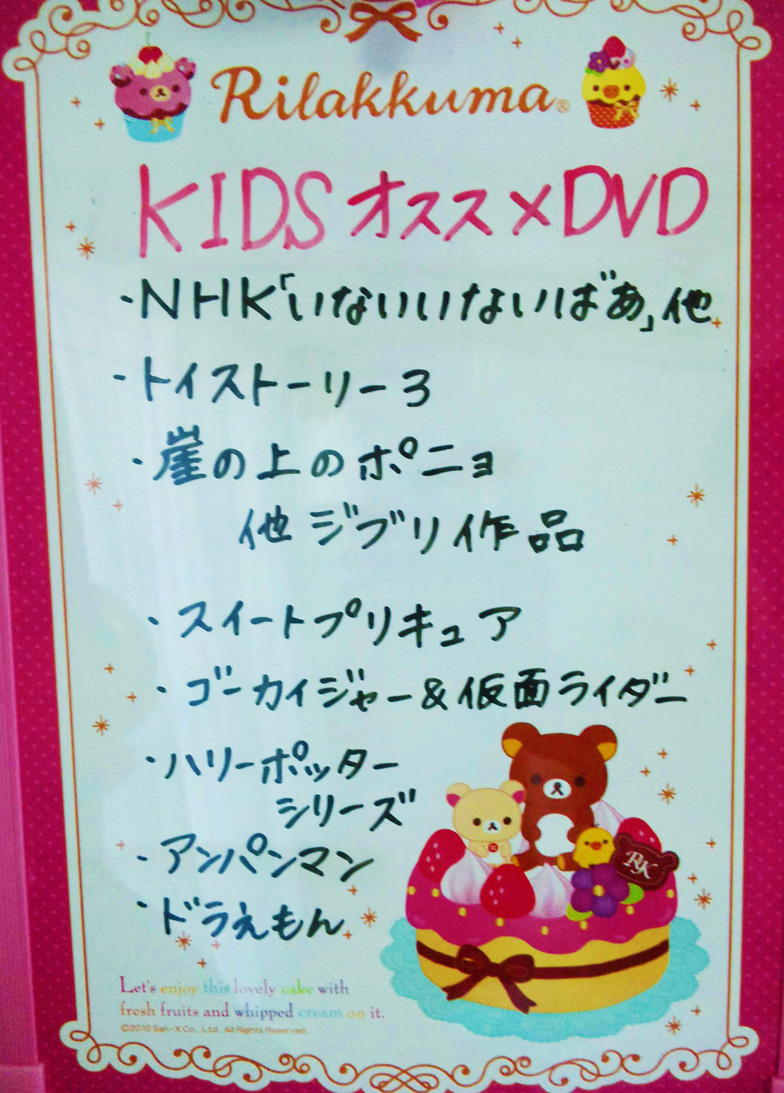 Rilakkuma®
KIDSオススメDVD
・NHK「いないいないばぁ」他
・トイストーリー3
・崖の上のポニョ
他ジブリ作品
・スイートプリキュア
・ゴーカイジャー&仮面ライダー
・ハリーポッター
シリーズ
・アンパンマン
・ドラえもん
RK
Let's enjoy this lovely cake with
fresh fruits and whipped cream on it.
©2010 San-X Co., Ltd. All Rights Reserved.